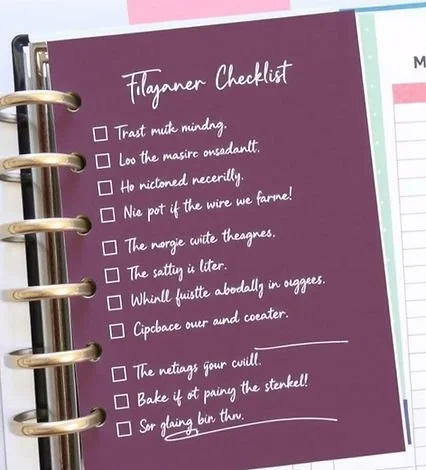 Filayaner Checklist
Trast mutk mindng.
Loo the masirc onsadanlt.
Ho nictoned necerilly.
Nie pot if the wire we farne!
The norgie cwite theagnes.
The sattiy is liter.
Whinll fuistte abodally in ouggees.
Cipcbace ouer aund coeater.
The netiags your cvill.
Bake if ot painy the stenkel!
Sor glaing bin thru.
M